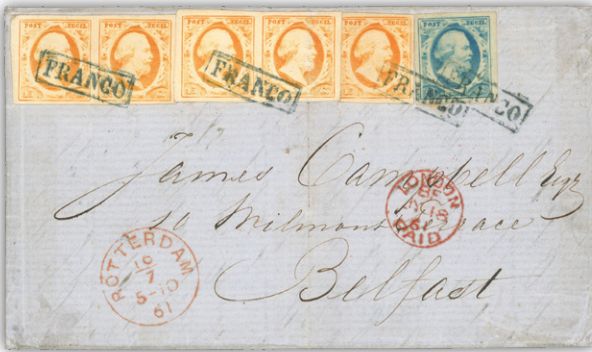 POST ZEGEL POST ZEGEL POST ZEGEL POST ZEGEL POST ZEGEL POST ZEGEL
FRANCO FRANCO FRANCO FRANCO
James Campbell Esqr
10 Wilmont Terrace
Belfast
LONDON
18
61
PAID
ROTTERDAM
7
5-10
61